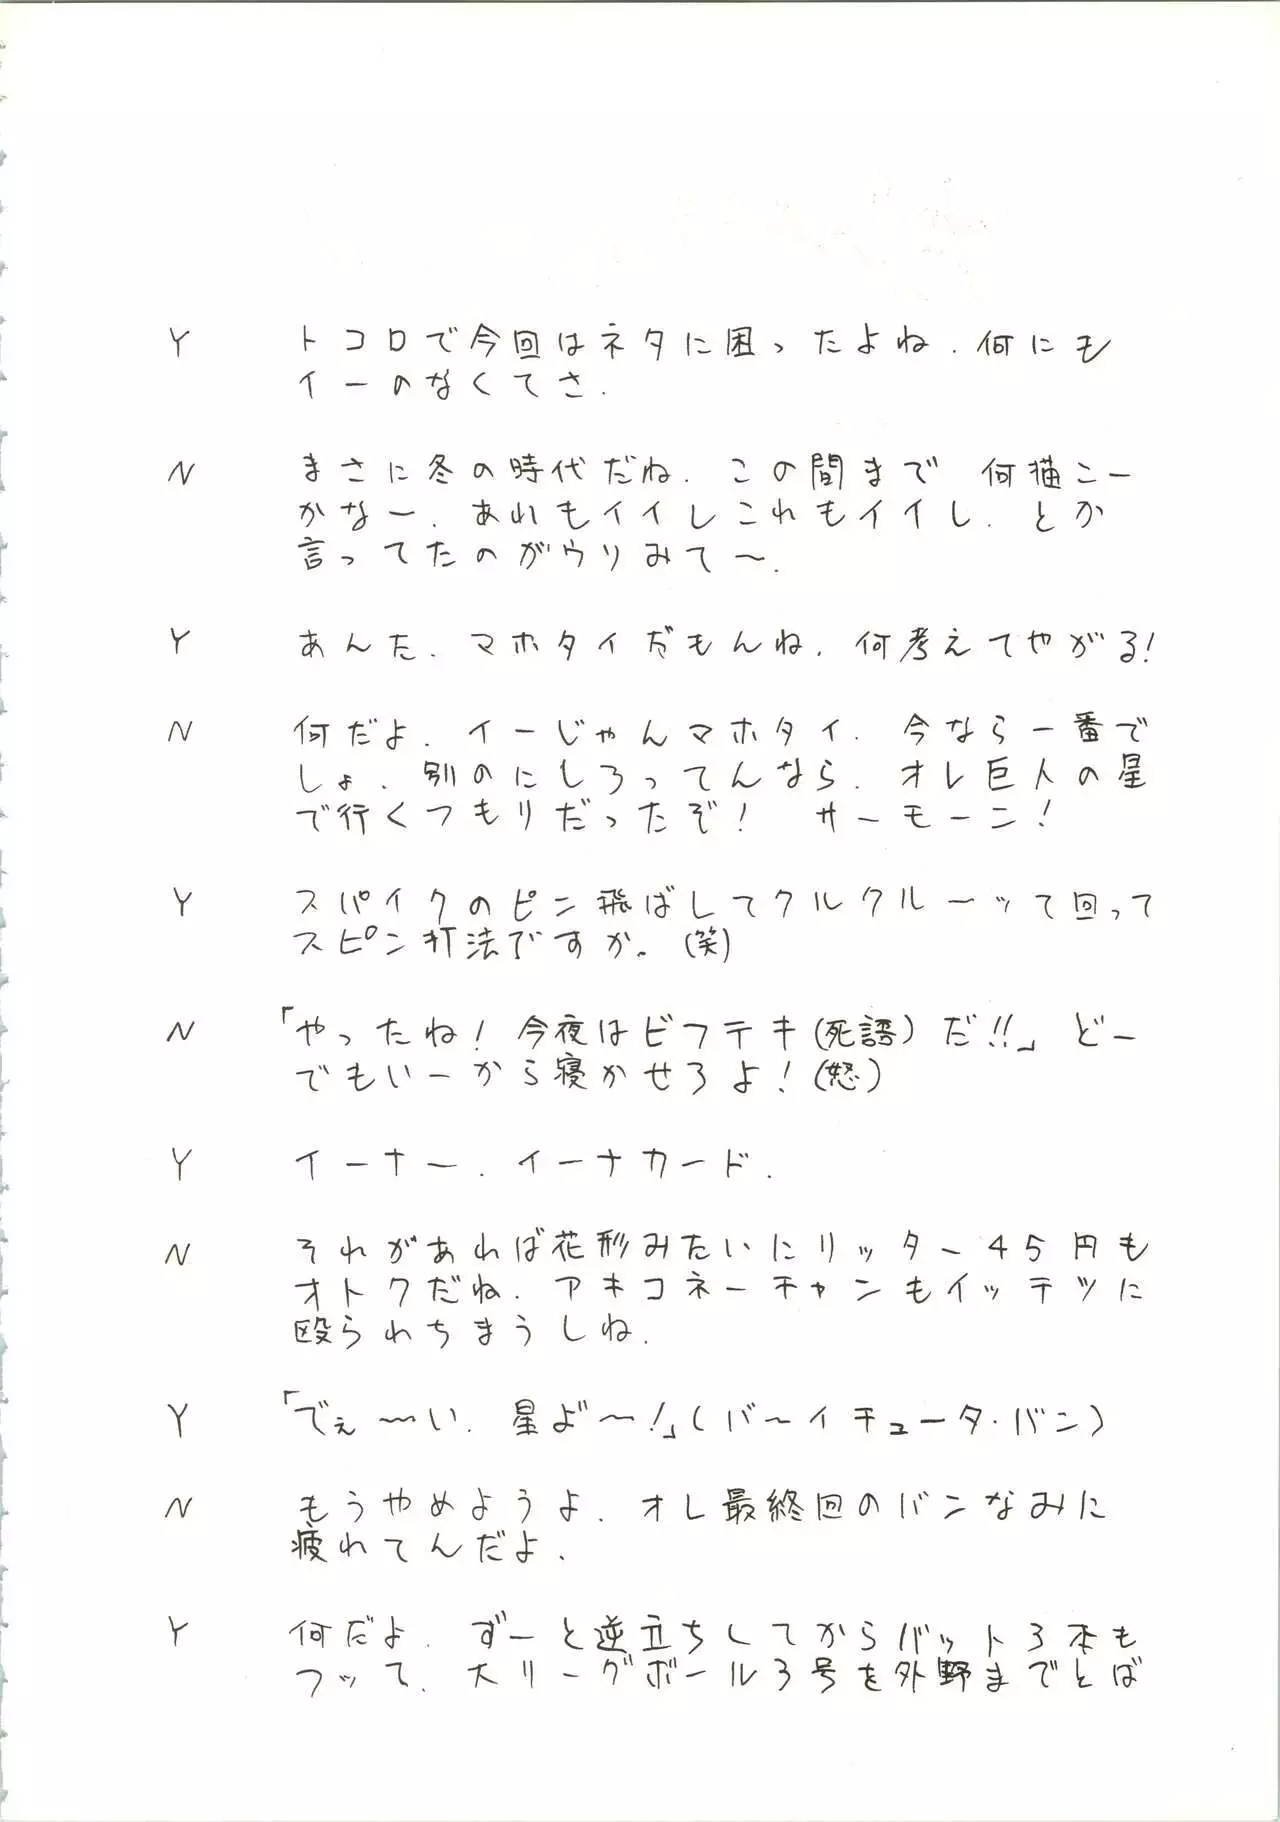 Y トコロで今回はネタに困ったよね．何にも
イーのなくてさ．
N まさに冬の時代だね．この間まで 何描こー
かなー．あれもイイしこれもイイし．とか
言ってたのがウソみて〜．
Y あんた．マホタイだもんね．何考えてやがる！
N 何だよ．イーじゃんマホタイ．今なら一番で
しょ．別のにしろってんなら．オレ巨人の星
で行くつもりだったぞ！ サーモーン！
Y スパイクのピン飛ばしてクルクル〜ッて回って
スピン打法ですか。（笑）
N 「やったね！今夜はビフテキ（死語）だ!!」どー
でもいーから寝かせろよ！（怒）
Y イーナー．イーナカード．
N それがあれば花形みたいにリッター45円も
オトクだね．アキコネーチャンもイッテツに
殴られちまうしね．
Y 「でぇ〜〜い．星よ〜！」（バ〜イチュータ・バン）
N もうやめようよ．オレ最終回のバンなみに
疲れてんだよ．
Y 何だよ．ずーと逆立ちしてからバット3本も
フッて．大リーグボール3号を外野までとば